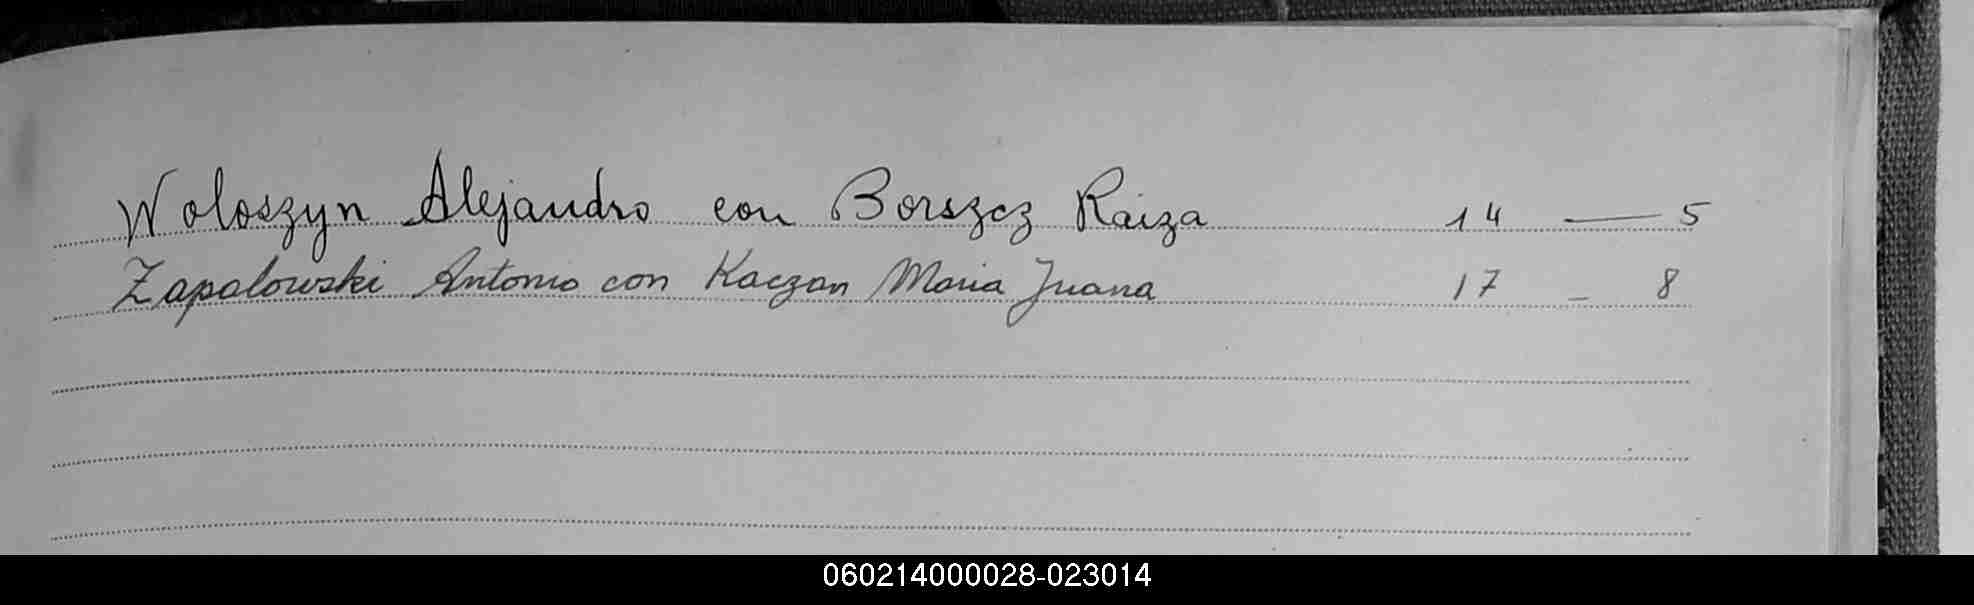 Woloszyn Alejandro con Borszcz Raiza 14 — 5
Zapalowski Antonio con Kaczan Maria Juana 17 - 8
060214000028-023014